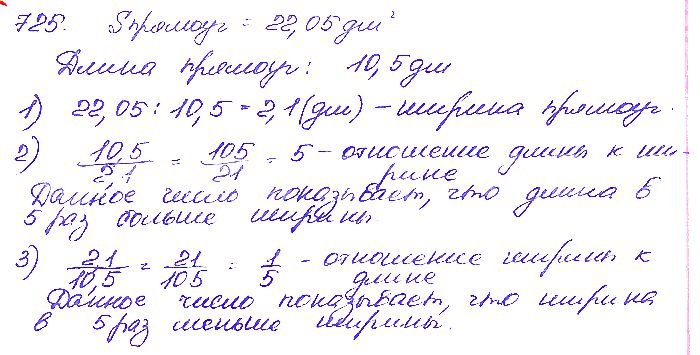 725. Sпрямоуг = 22,05 дм²
Длина прямоуг: 10,5 дм
1) 22,05 : 10,5 = 2,1 (дм) – ширина прямоуг.
2) 10,5/2,1 = 105/21 = 5 – отношение длины к ши-
рине
Данное число показывает, что длина в
5 раз больше ширины.
3) 2,1/10,5 = 21/105 = 1/5 – отношение ширины к
длине
Данное число показывает, что ширина
в 5 раз меньше ширины.